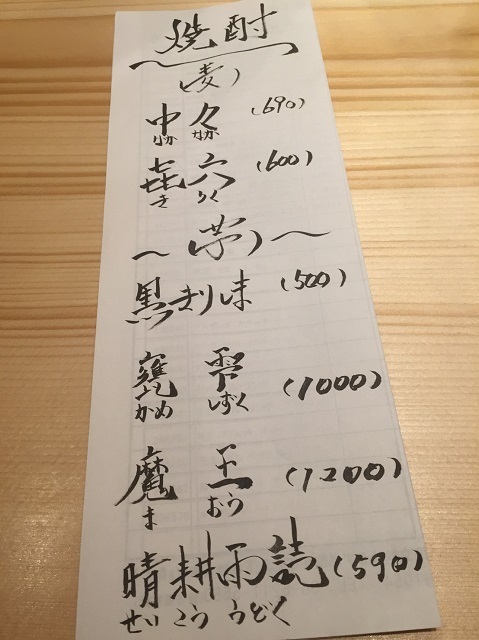 焼酎
(麦)
中々 (690)
なか なか
㐂六 (600)
き ろく
〜(芋)〜
黒きりしま (500)
甕 雫 (1000)
かめ しずく
魔 王 (1200)
ま おう
晴耕雨読 (590)
せい こう うどく